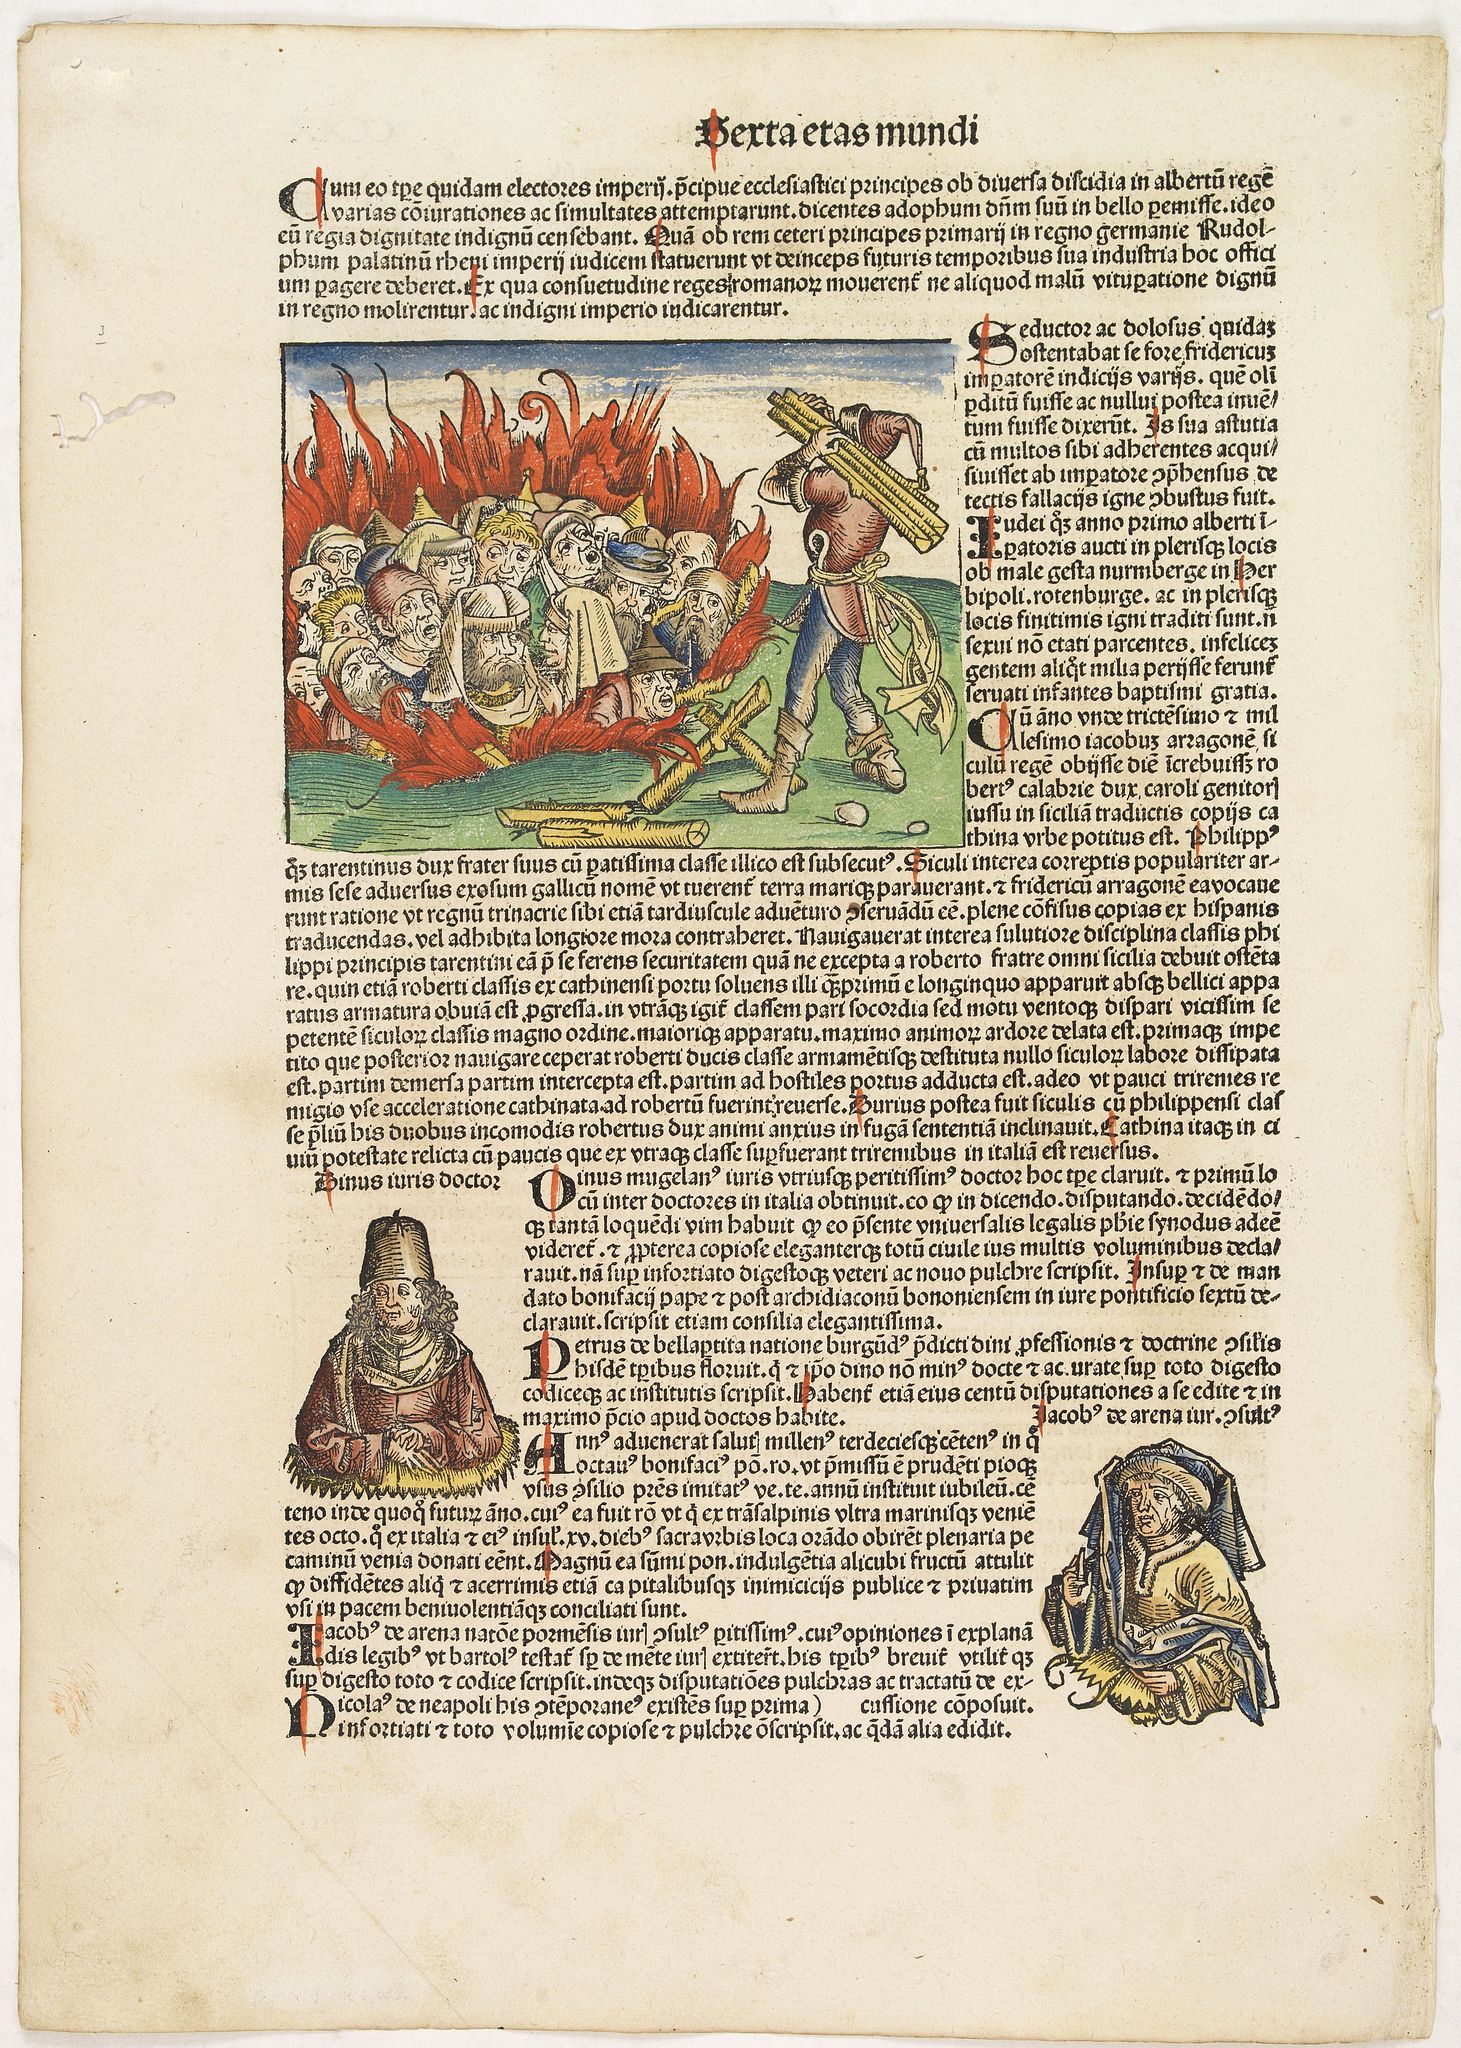 Sexta etas mundi
Cum eo tp̄e quidam electores imperij. p̄cipue ecclesiastici principes ob diuersa discidia in albertū regē
varias cōiurationes ac simultates attemptarunt. dicentes adophum dn̄m suū in bello p̲emisse. ideo
eū regia dignitate indignū censebant. Quā ob rem ceteri principes primarij in regno germanie Rudol-
phum palatinū rheni imperij iudicem statuerunt vt deinceps futuris temporibus sua industria hoc offici
um p̲agere deberet. Ex qua consuetudine reges romanoꝝ mouerent᷑ ne aliquod malū vitup̲atione dignū
in regno molirentur. ac indigni imperio indicarentur.
Seductor ac dolosus quidaꝫ
ostentabat se fore fridericuꝫ
imp̲atorē indicijs varijs. quē oli᷑
p̲ditū fuisse ac nullui postea inuē/
tum fuisse dixerūt. Is sua astutia
cū multos sibi adherentes acqui/
siuisset ab imp̲atore ꝯp̄hensus de
tectis fallacijs igne ꝯbustus fuit.
Iudei qꝫ anno primo alberti ī-
p̲atoris aucti in plerisqꝫ locis
ob male gesta nurmberge in Her
bipoli. rotenburge. ac in plerisqꝫ
locis finitimis igni traditi sunt. n̄
sexui nō etati parcentes. infelicez
gentem aliqt᷑ milia perijsse ferunt᷑
seruati infantes baptismi gratia.
Cū āno vnde trictēsimo ⁊ mil
lesimo iacobuꝫ arragonē, si
culū regē obijsse diē īcrebuissꝫ ro
bertꝰ calabrie dux, caroli genitorꝭ
iussu in siciliā traductis copijs ca
thina vrbe potitus est. Philippꝰ
qꝫ tarentinus dux frater suus cū p̲atissima classe illico est subsecutꝰ. Siculi interea correptis populariter ar-
mis sese aduersus exosum gallicū nomē vt tuerent᷑ terra mariqꝫ parauerant. ⁊ fridericū arragonē eauocaue
runt ratione vt regnū trinacrie sibi etiā tardiuscule aduēturo ꝯseruādū eē. plene cōfisus copias ex hispanis
traducendas. vel adhibita longiore mora contraheret. Nauigauerat interea sulutiore disciplina classis phi
lippi principis tarentini eā p̄ se ferens securitatem quā ne excepta a roberto fratre omni sicilia debuit ostēta
re. quin etiā roberti classis ex cathinensi portu soluens illi qꝫprimū e longinquo apparuit absqꝫ bellici appa
ratus armatura obuiā est ꝓgressa. in vtrāqꝫ igit᷑ classem pari socordia sed motu ventoqꝫ dispari vicissim se
petentē siculoꝝ classis magno ordine. maioriqꝫ apparatu. maximo animoꝝ ardore delata est. primaqꝫ impe
tito que posterior nauigare ceperat roberti ducis classe armamētisqꝫ destituta nullo siculoꝝ labore dissipata
est. partim demersa partim intercepta est. partim ad hostiles portus adducta est. adeo vt pauci triremes re
migio vse acceleratione cathinata. ad robertū fuerint reuerse. Durius postea fuit siculis cū philippensi clas
se p̄liū his duobus incomodis robertus dux animi anxius in fugā sententiā inclinauit. Cathina itaqꝫ in ci
uiū potestate relicta cū paucis que ex vtraqꝫ classe sup̲fuerant triremibus in italiā est reuersus.
Dinus iuris doctor
Dinus mugelanꝰ iuris vtriusqꝫ peritissimꝰ doctor hoc tp̄e claruit. ⁊ primū lo
cū inter doctores in italia obtinuit. eo ꝙ in dicendo. disputando. decidēdo/
qꝫ tantā loquēdi vim habuit ꝙ eo p̄sente vniuersalis legalis ph̄ie synodus adeē
videret᷑. ⁊ ꝓpterea copiose eleganterqꝫ totū ciuile ius multis voluminibus decla/
rauit. nā sup̲ infortiato digestoqꝫ veteri ac nouo pulchre scripsit. Insup̲ ⁊ de man
dato bonifacij pape ⁊ post archidiaconū bononiensem in iure pontificio sextū de-
clarauit. scripsit etiam consilia elegantissima.
Petrus de bellap̲tita natione burgūdꝰ p̄dicti dini ꝓfessionis ⁊ doctrine ꝯsilis
hisdē tp̲ibus floruit. q̄ ⁊ ip̄o dino nō minꝰ docte ⁊ ac. urate sup̲ toto digesto
codiceqꝫ ac institutis scripsit. Habent᷑ etiā eius centū disputationes a se edite ⁊ in
maximo p̄cio apud doctos habite.
Jacobꝰ de arena iur. ꝯsultꝰ
Annꝰ aduenerat salutꝭ millenꝰ terdeciesqꝫ cētenꝰ in q̊
octauꝰ bonifaciꝰ pō. ro. vt p̄missū ē prudēti pioqꝫ
vsus ꝯsilio prēs imitatꝰ ve. te. annū instituit iubileū. cē
teno inde quoq̊ futurꝝ āno. cuiꝰ ea fuit rō vt q̄ ex trāsalpinis vltra marinisqꝫ veniē
tes octo. q̊ ex italia ⁊ eiꝰ insul᷑. xv. diebꝰ sacravrbis loca orādo obirēt plenaria pe
caminū venia donati eēnt. Magnū ea sūmi pon. indulgētia alicubi fructū attulit
ꝙ diffidētes aliq̄ ⁊ acerrimis etiā capitalibusqꝫ inimicicijs publice ⁊ priuatim
vsi in pacem beniuolentiāqꝫ conciliati sunt.
Iacobꝰ de arena natōe pormēsis iurꝭ ꝯsultꝰ p̲itissimꝰ. cuiꝰ opiniones ī explanā
dis legibꝰ vt bartolꝰ testat᷑ sp̲ de mēte iurꝭ extiter̄t. his tp̲ibꝰ breuit᷑ vtilit᷑ qꝫ
sup̲ digesto toto ⁊ codice scripsit. indeqꝫ disputatiōes pulchras ac tractatū de ex-
cussione cōposuit.
Nicolaꝰ de neapoli his ꝯtēporaneꝰ existēs sup̲ prima)
infortiati ⁊ toto volumīe copiose ⁊ pulchre ōscripsit. ac q̄dā alia edidit.